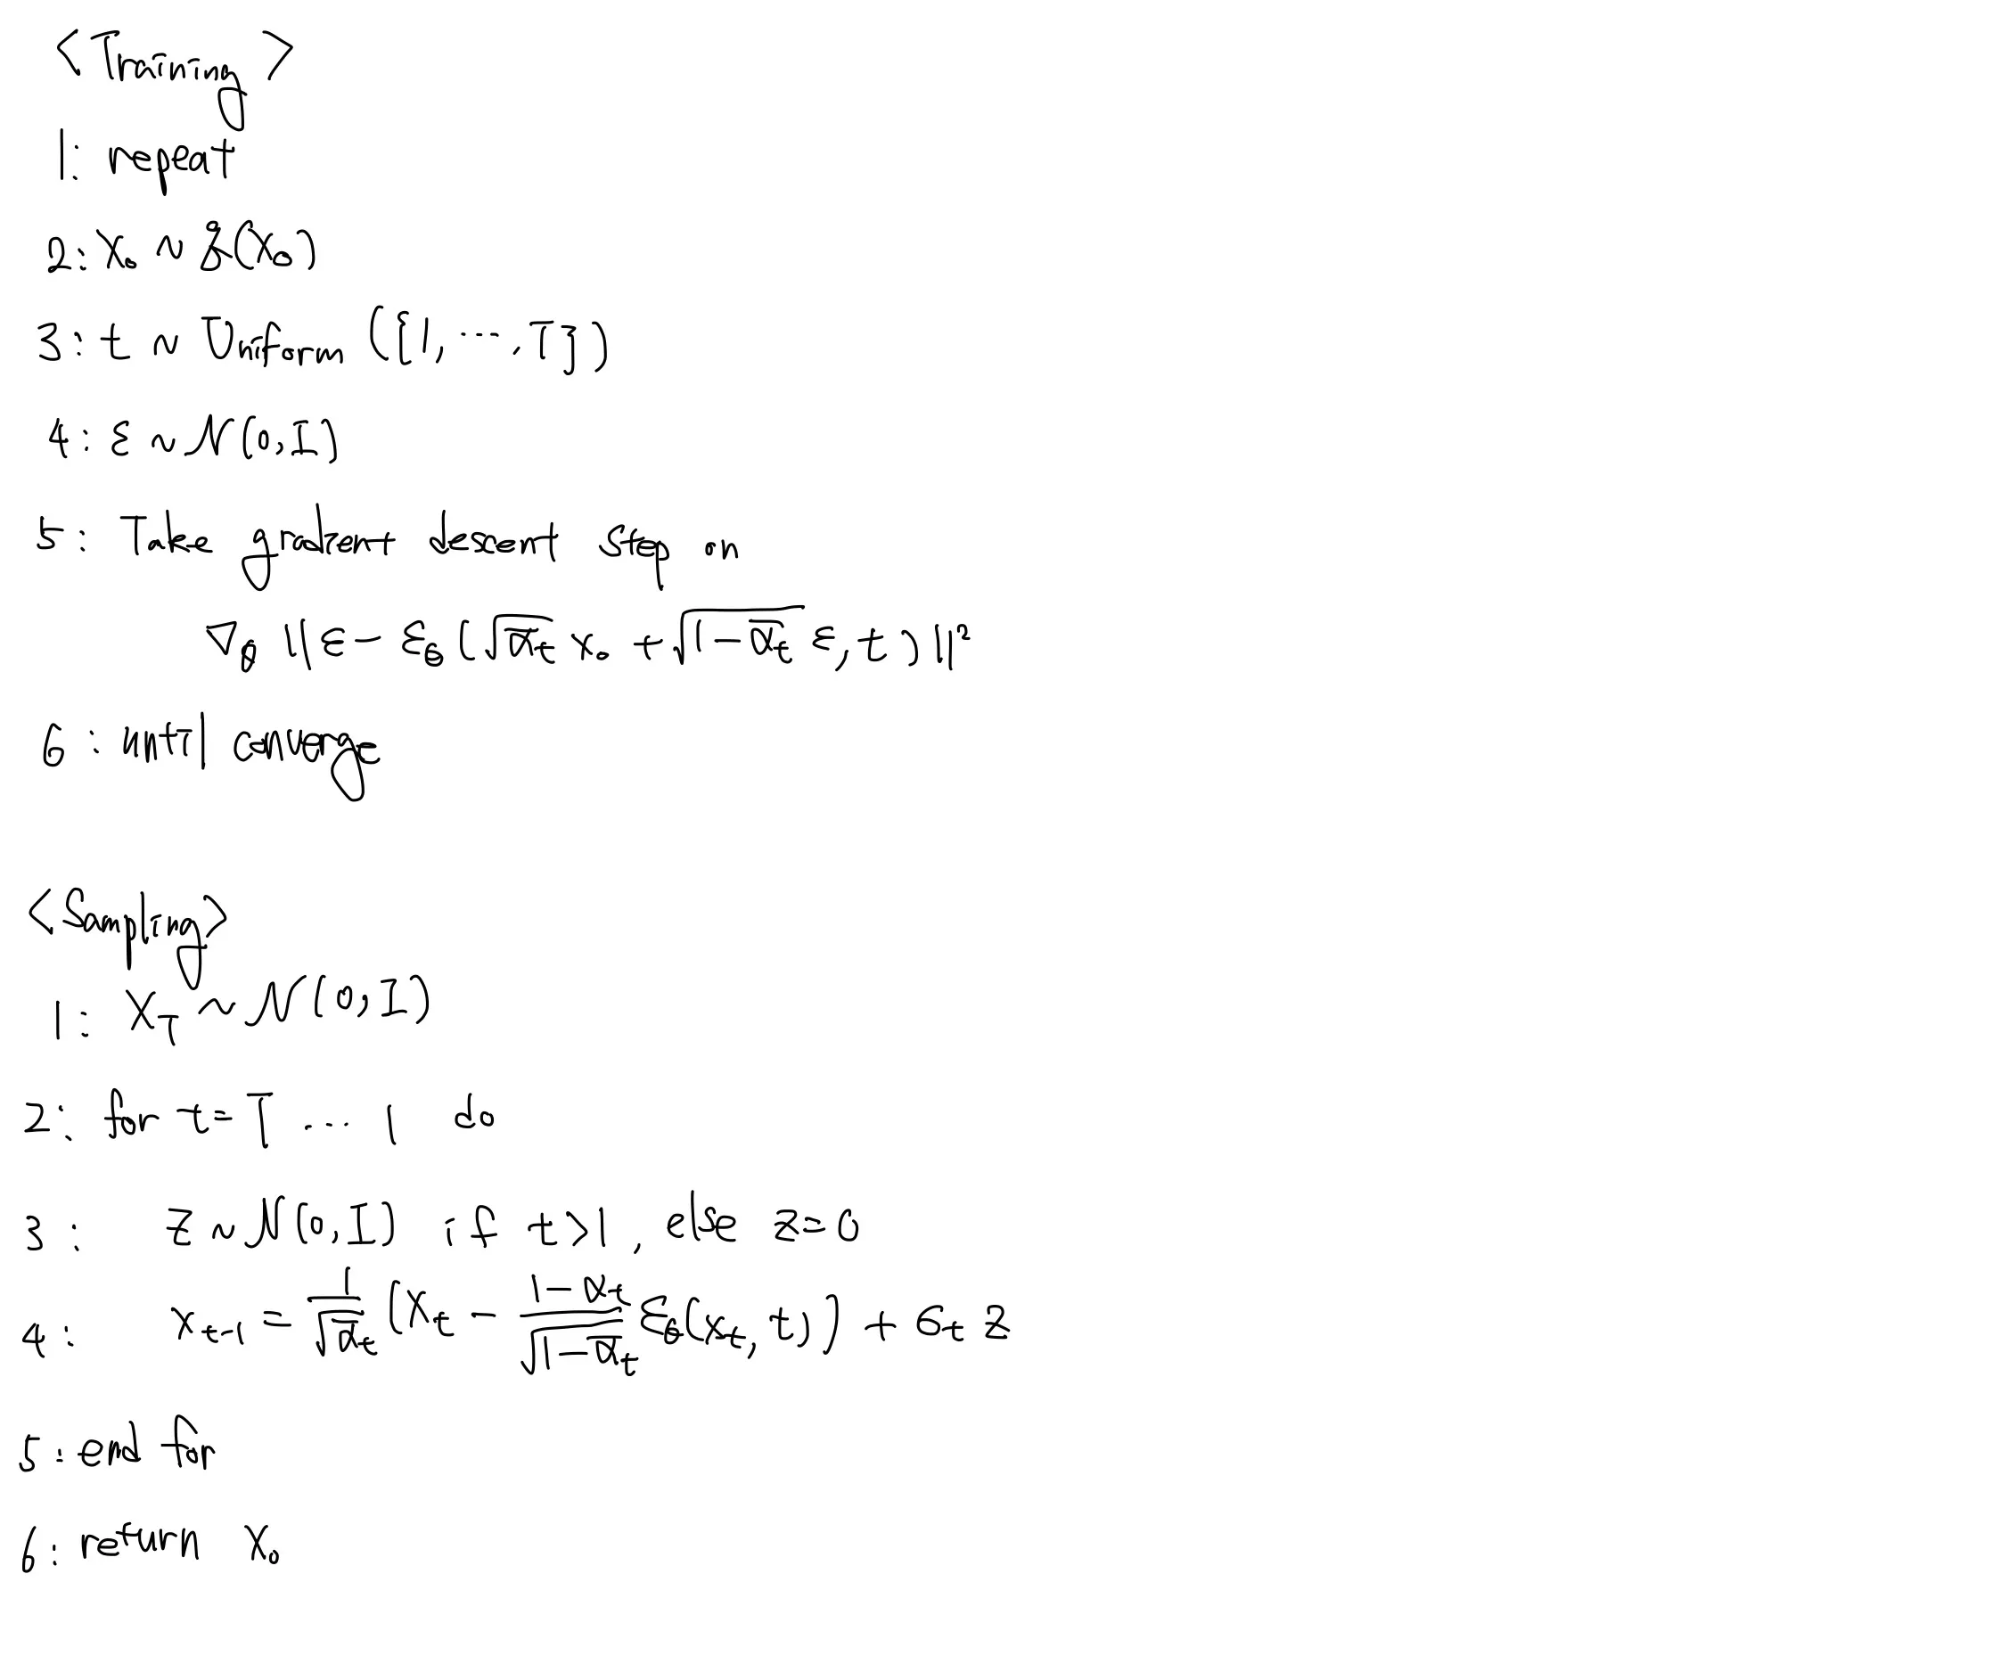 <Training>
1: repeat
2: x₀ ~ q(x₀)
3: t ~ Uniform ({1, ⋯, T})
4: ε ~ 𝒩(0, I)
5: Take gradient descent step on
∇_θ ||ε − ε_θ(√ᾱ_t x₀ + √(1−ᾱ_t) ε, t)||²
6: until converge
<Sampling>
1: x_T ~ 𝒩(0, I)
2: for t = T ... 1 do
3: z ~ 𝒩(0, I) if t>1, else z=0
4: x_{t-1} = 1/√ᾱ_t (x_t − (1−α_t)/√(1−ᾱ_t) ε_θ(x_t, t)) + σ_t z
5: end for
6: return x₀